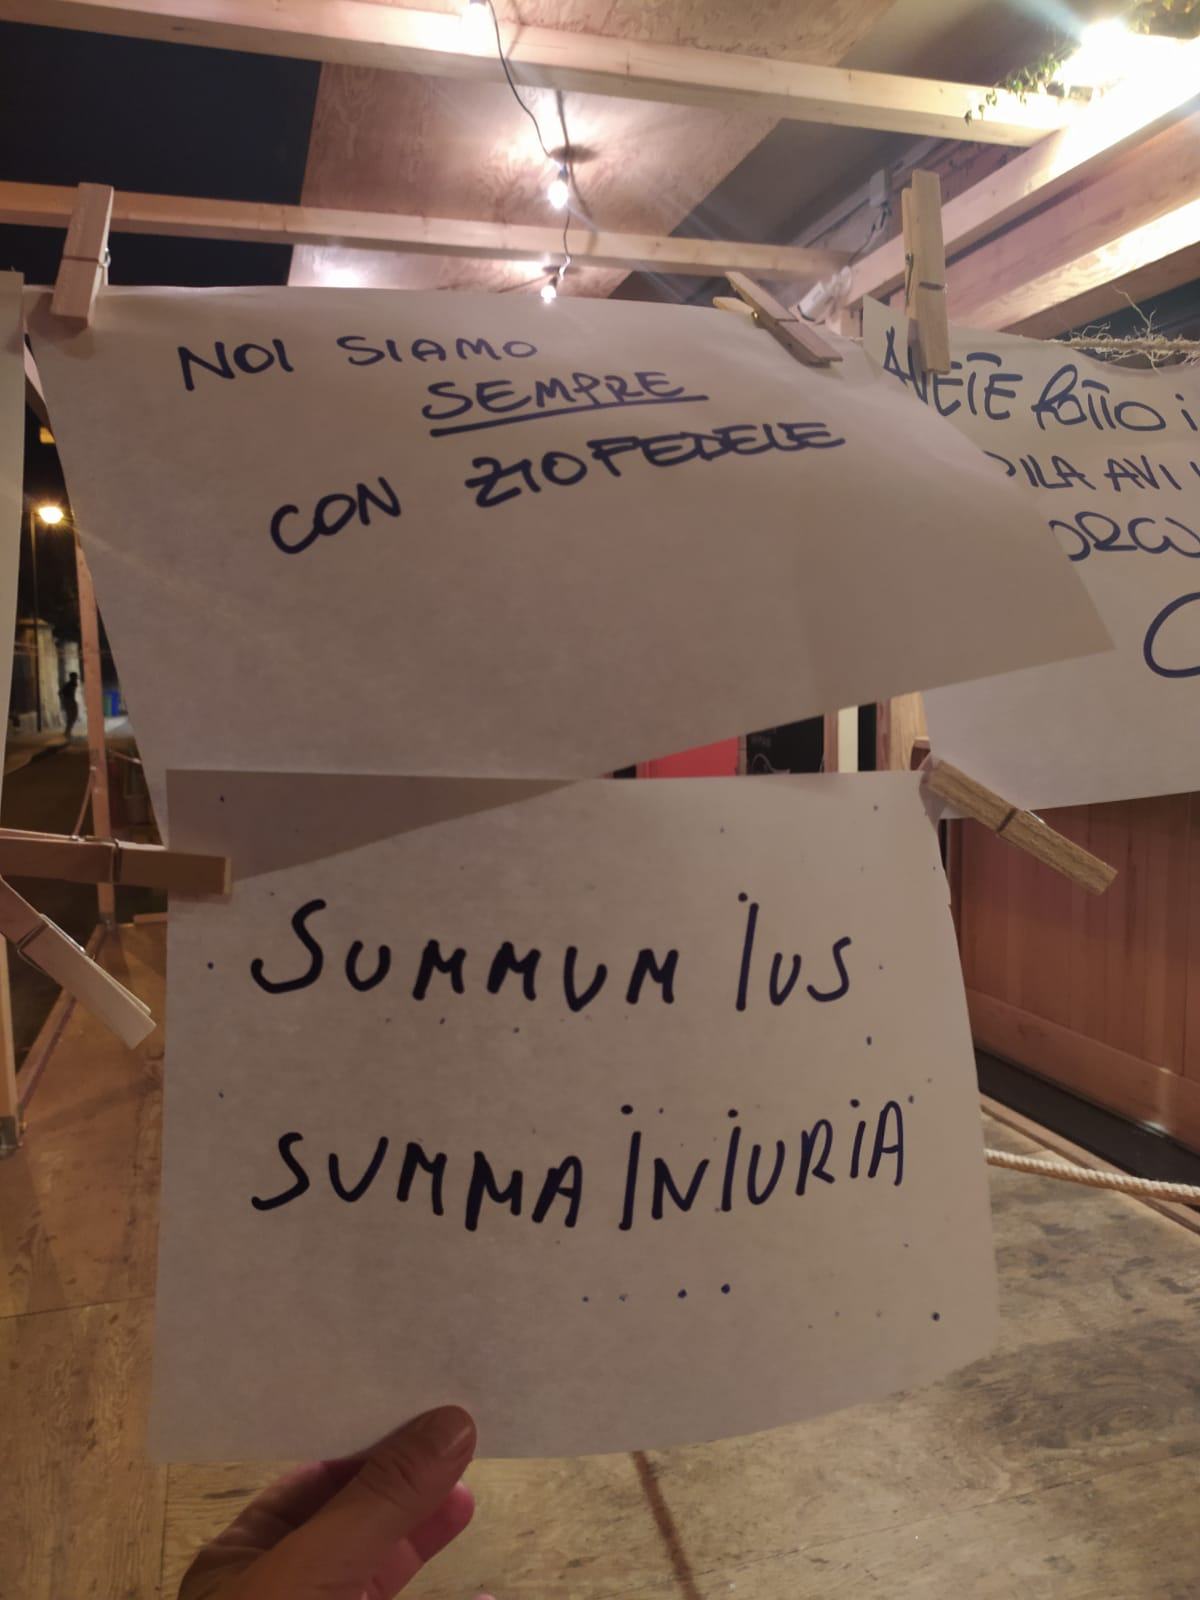 NOI SIAMO
SEMPRE
CON ZIOFEDELE
AVETE ROTTO i
SUMMUM IUS
SUMMA INIURIA
....